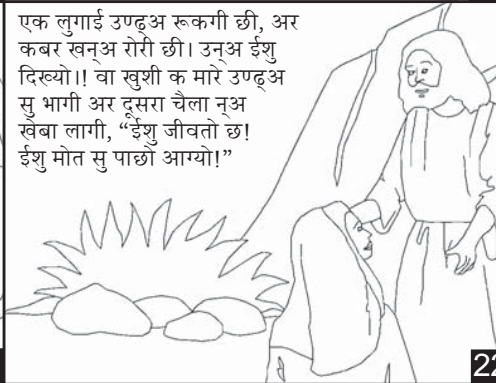 एक लुगाई उण्ढ्अ रूकगी छी, अर
कबर खन्अ रोरी छी। उन्अ ईशु
दिख्यो।! वा खुशी क मारे उण्ढ्अ
सु भागी अर दूसरा चैला न्अ
खेबा लागी, “ईशु जीवतो छ!
ईशु मोत सु पाछो आग्यो!”